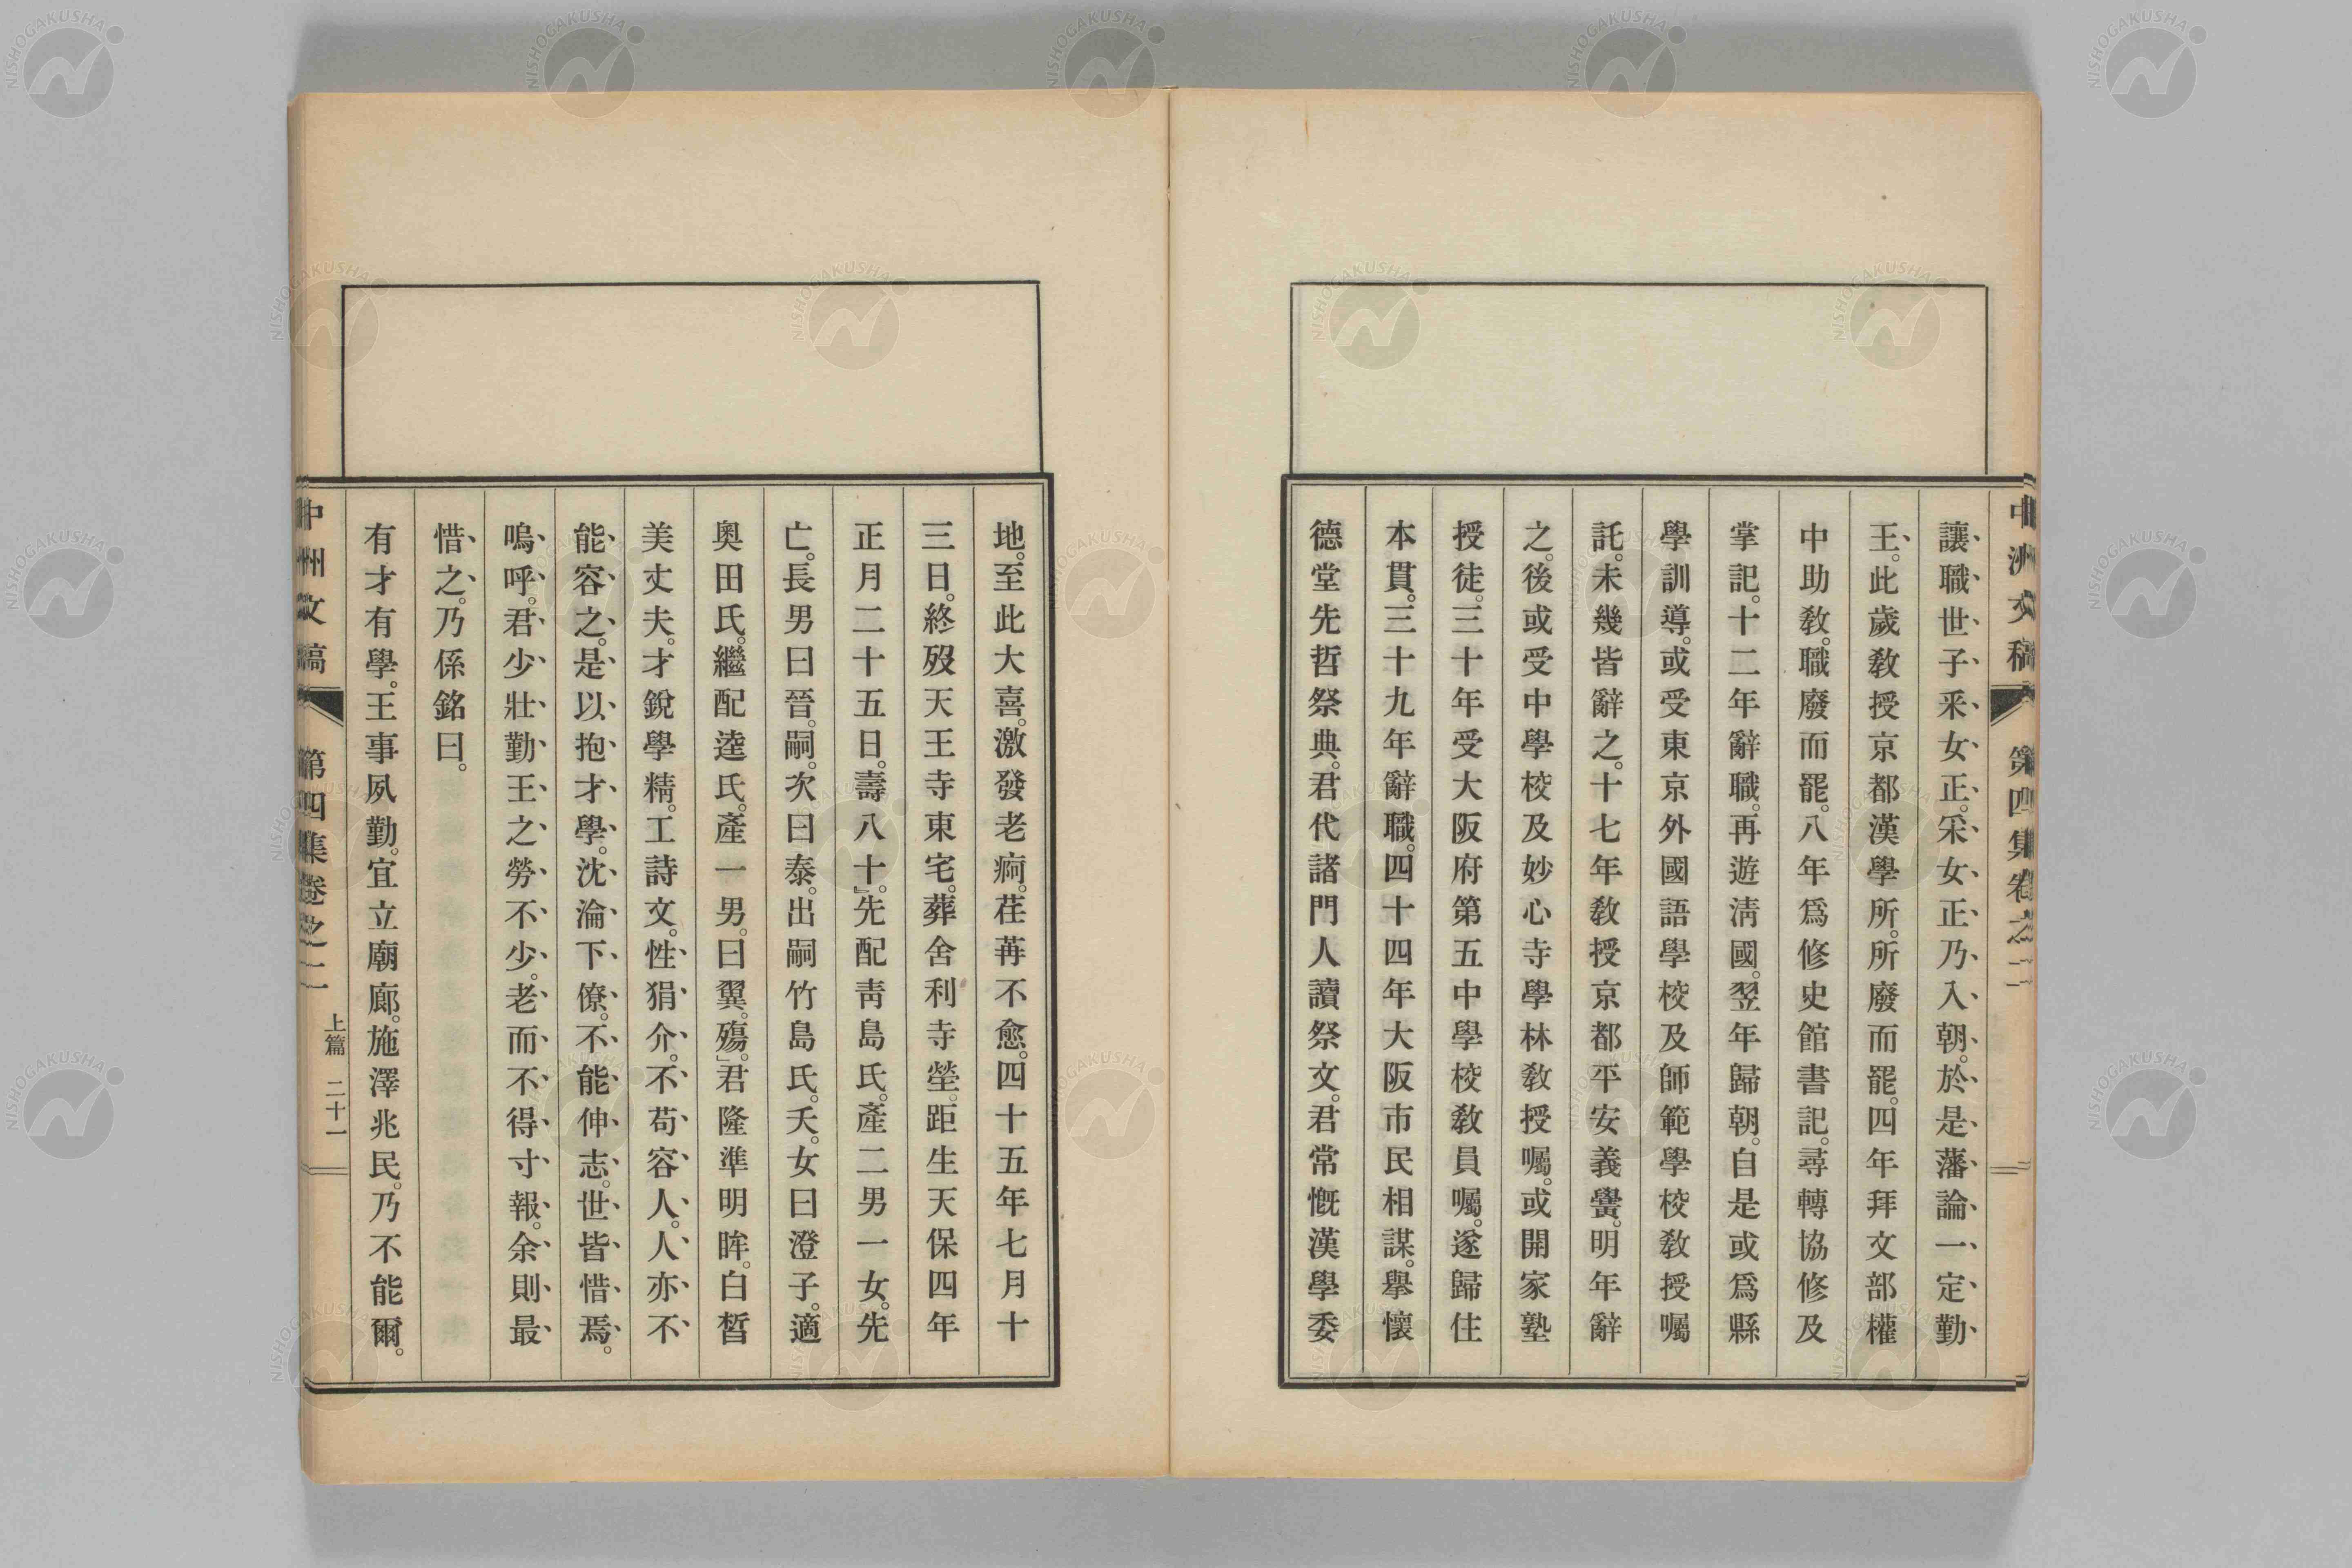 中洲文稿 第四集卷之二
讓職世子釆女正。釆女正乃入朝。於是藩論一定勤
王。此歲敎授京都漢學所。所廢而罷。四年拜文部權
中助敎。職廢而罷。八年爲修史館書記。尋轉協修及
掌記。十二年辭職。再遊淸國。翌年歸朝。自是或爲縣
學訓導。或受東京外國語學校及師範學校敎授囑
託。未幾皆辭之。十七年敎授京都平安義黌。明年辭
之。後或受中學校及妙心寺學林敎授囑。或開家塾
授徒。三十年受大阪府第五中學校敎員囑。遂歸住
本貫。三十九年辭職。四十四年大阪市民相謀。擧懷
德堂先哲祭典。君代諸門人讀祭文。君常慨漢學委
地。至此大喜。激發老痾。荏苒不愈。四十五年七月十
三日。終歿天王寺東宅。葬舍利寺塋。距生天保四年
正月二十五日。壽八十。」先配靑島氏。產二男一女。先
亡。長男曰晉。嗣。次曰泰。出嗣竹島氏。夭。女曰澄子。適
奧田氏。繼配逵氏。產一男。曰翼。殤。」君隆準明眸。白皙
美丈夫。才銳學精。工詩文。性狷介。不苟容人。人亦不
能容之。是以抱才學。沈淪下僚。不能伸志。世皆惜焉。
嗚呼。君少壯勤王之勞不少。老而不得寸報。余則最
惜之。乃係銘曰。
有才有學。王事夙勤。宜立廟廊。施澤兆民。乃不能爾。
中洲文稿 第四集卷之二 上篇 二十一